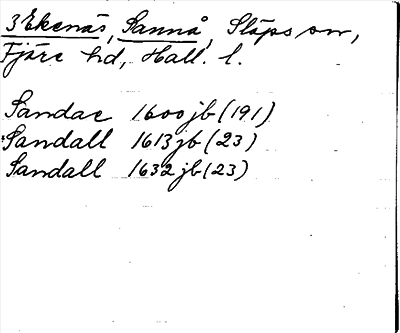 3 Ekenäs, Sannå, Släps sn,
Fjäre hd, Hall. l.
Sandac 1600 jb (191)
Sandall 1613 jb (23)
Sandall 1632 jb (23)